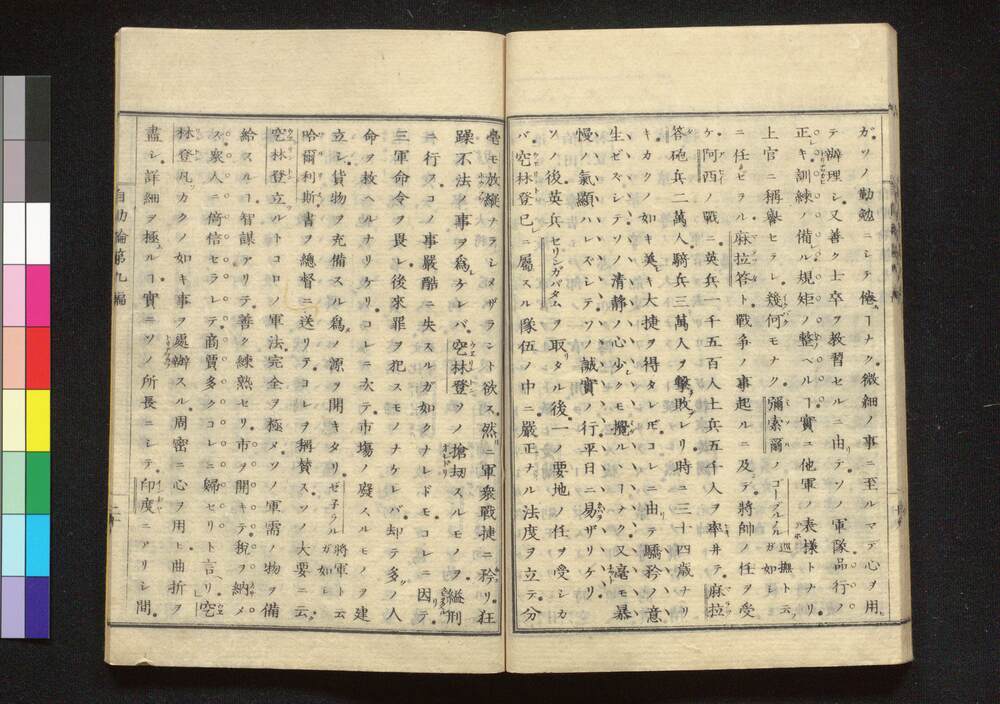 ガ、ソノ勤勉ニシテ倦ヿナク、微細ノ事ニ至ルマデ心ヲ用
テ辦理シ、又善ク士卒ヲ教習セルニ由テ、ソノ軍隊品行ノ
正キ、訓練ノ備レル、規矩ノ整ヘルヿ、實ニ他軍ノ表様トナリ、
上官ニ稱擧セラレ、幾何モナク、彌索爾ノゴーブルノル巡撫ト云フガ如シ
ニ任ゼラル、麻拉答ト戰争ノ事起ルニ及テ、將帥ノ任ヲ受
ケ、阿西ノ戰ニ、英兵一千五百人、土兵五千人ヲ率井テ、麻拉
答砲兵二萬人、騎兵三萬人ヲ擊敗レリ、時ニ三十四歳ナリ
キ、カクノ如キ美キ大捷ヲ得タレ𪜈、コレニ由テ驕矜ノ意
生ゼズシテ、ソノ清静ノ心少クモ攪ルヽーナク、又毫モ暴
慢ノ氣顯ハレズシテ、ソノ誠實ノ行平日ニ易ザリケリ、
ソノ後英兵セリンガパタムヲ取タル後、一ノ要地ノ任ヲ受シカ
バ、空林登已ニ屬スル隊伍ノ中ニ、嚴正ナル法度ヲ立テ、分
毫モ放縱ナラシメザラント欲ス、然ニ軍衆戰捷ニ矜リ、狂
躁不法ノ事ヲ爲ケレバ、空林登ソノ搶刧スルモノヲ、縊刑
ニ行ス、コノ事嚴酷ニ失スルガ如クナレドモ、コレニ因テ、
三軍命令ヲ畏レ、後來罪ヲ犯スモノナケレバ、却テ多ノ人
命ヲ救ヘルナリケリ、コレニ次テ、市場ノ廢スルモノヲ建
立シ、貨物ヲ充備スル爲ノ源ヲ開キタリ、ゼ子ラル將軍ト云フガ如シ
哈爾利斯書ヲ總督ニ送リテ、コレヲ稱賛ス、ソノ大要ニ云
空林登立ルトコロノ軍法、完全ヲ極メ、ソノ軍需ノ物ヲ備
給スルヿ、智謀アリテ善ク練熟セリ、市ヲ開キテ、税ヲ納メ
ス、衆人ニ倚信セラレテ、商賈多クコレニ歸セリト言リ、空
林登凡ソカクノ如キ事ヲ處辦スル、周密ニ心ヲ用ヒ、曲折ヲ
盡シ、詳細ヲ極ルヿ、實ニソノ所長ニシテ、印度ニアリシ間、
自助論第九編